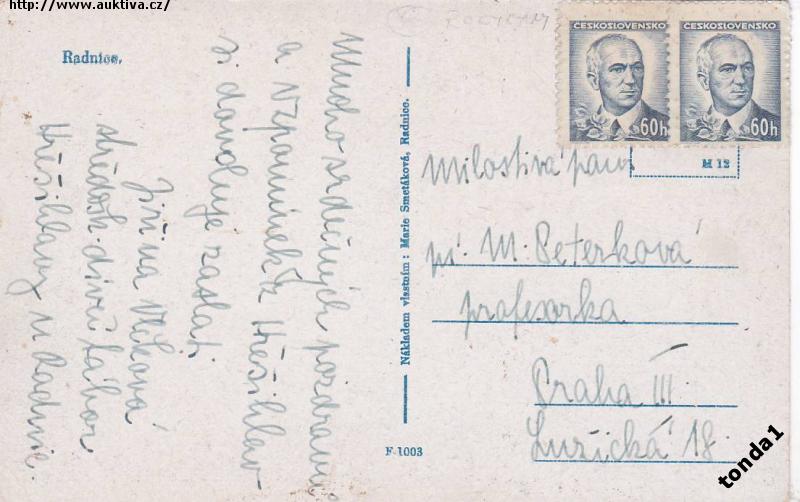 http://www.auktiva.cz/
Radnice.
Mnoho srdečných pozdravů
a vzpomínek z Hřešihlav
si dovoluje zaslat
Jiřina Vlková
středosk. dívčí tábor
Hřešihlavy u Radnic.
Nákladem vlastním: Marie Smetáková, Radnice.
F 1003
ČESKOSLOVENSKO
60h
ČESKOSLOVENSKO
60h
M 12
Milostivá paní
pí. M. Peterková
profesorka
Praha III
Lužická 18.
tonda1